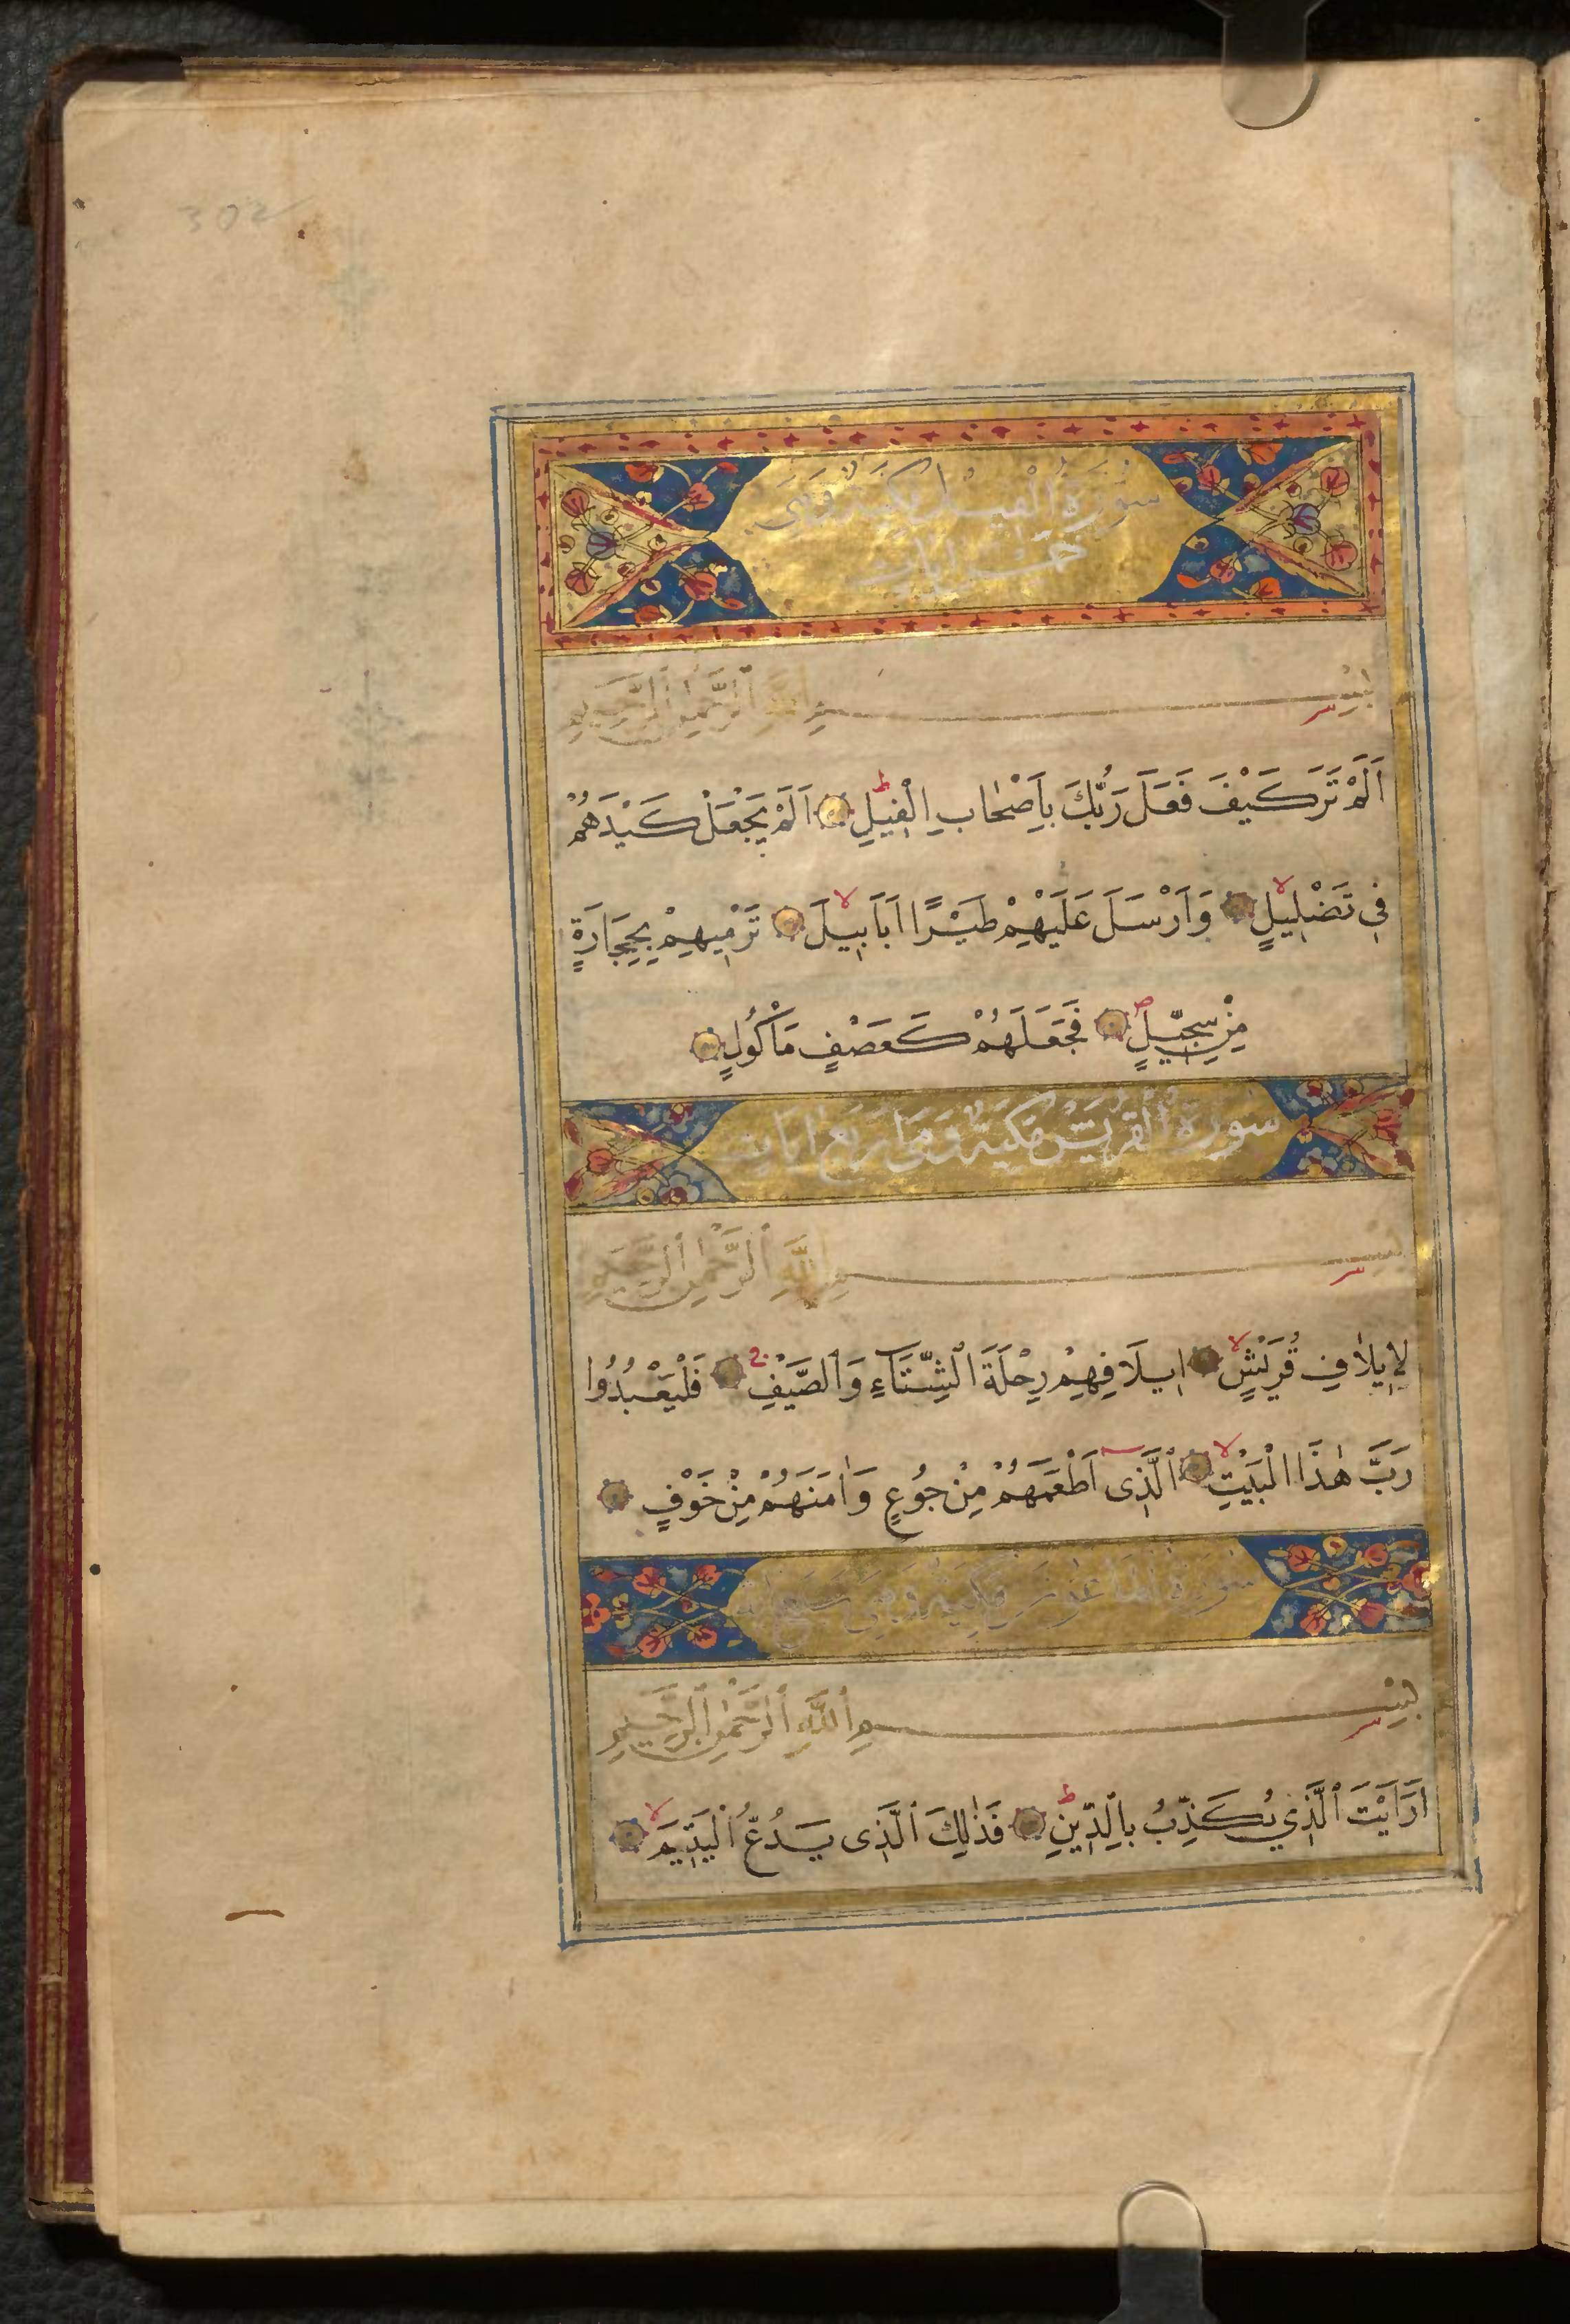 302
سُورَةُ الْفِيلِ مَكِّيَّةٌ وَهِيَ
خَمْسُ اٰيَاتٍ
بِسْمِ اللّٰهِ ٱلرَّحْمٰنِ ٱلرَّحِيمِ
اَلَمْ تَرَ كَيْفَ فَعَلَ رَبُّكَ بِاَصْحَابِ الْفِيلِ ط اَلَمْ يَجْعَلْ كَيْدَهُمْ
فِى تَضْلِيلٍ لا وَاَرْسَلَ عَلَيْهِمْ طَيْرًا اَبَابِيلَ لا تَرْمِيهِمْ بِحِجَارَةٍ
مِنْ سِجِّيلٍ ص فَجَعَلَهُمْ كَعَصْفٍ مَأْكُولٍ
سُورَةُ الْقُرَيْشِ مَكِّيَّةٌ وَهِيَ اَرْبَعُ اٰيَاتٍ
بِسْمِ اللّٰهِ ٱلرَّحْمٰنِ ٱلرَّحِيمِ
لِاِيلَافِ قُرَيْشٍ لا اِيلَافِهِمْ رِحْلَةَ ٱلشِّتَآءِ وَٱلصَّيْفِ ج فَلْيَعْبُدُوا
رَبَّ هٰذَا الْبَيْتِ لا ٱلَّذِى اَطْعَمَهُمْ مِنْ جُوعٍ وَاٰمَنَهُمْ مِنْ خَوْفٍ
سُورَةُ الْمَاعُونِ مَكِّيَّةٌ وَهِيَ سَبْعُ اٰيَاتٍ
بِسْمِ ٱللّٰهِ ٱلرَّحْمٰنِ ٱلرَّحِيمِ
اَرَاَيْتَ ٱلَّذِي يُكَذِّبُ بِٱلدِّينِ ط فَذٰلِكَ ٱلَّذِى يَدُعُّ ٱلْيَتِيمَ لا